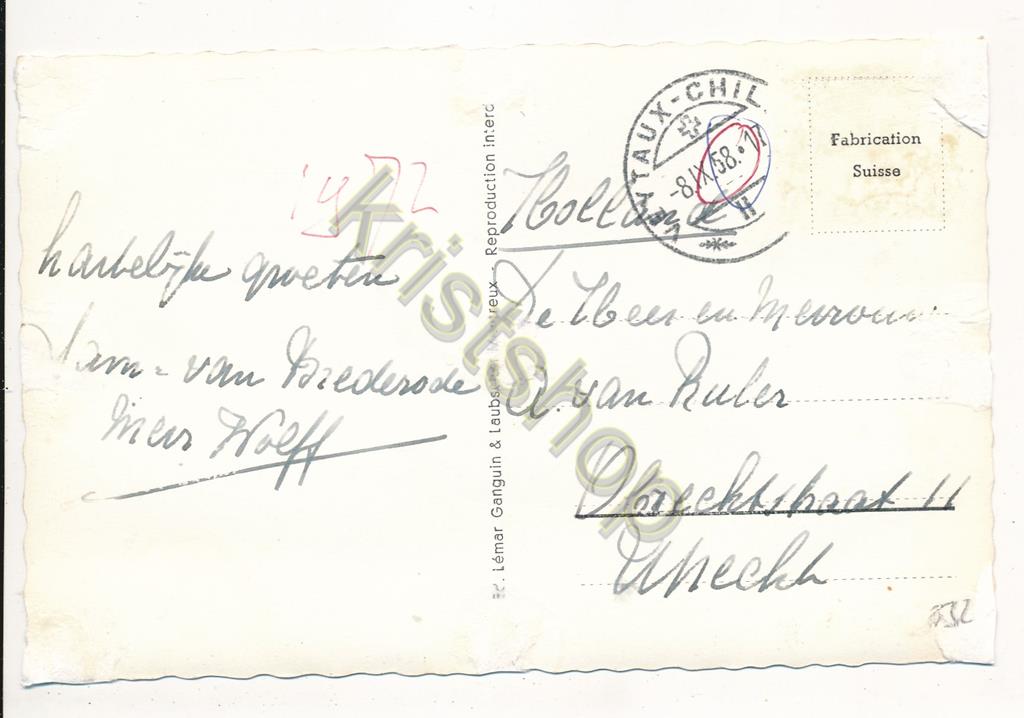 hartelijke groeten
Fam: van Brederode
Mevr Wolff
Ed. Lémar Ganguin & Laubscher Montreux - Reproduction interd
VEYTAUX-CHIL
-8.IX.58.-1
Fabrication
Suisse
Holland
De Heer en Mevrouw
A. van Ruler
Obrechtstraat 11
Utrecht
Kristshop